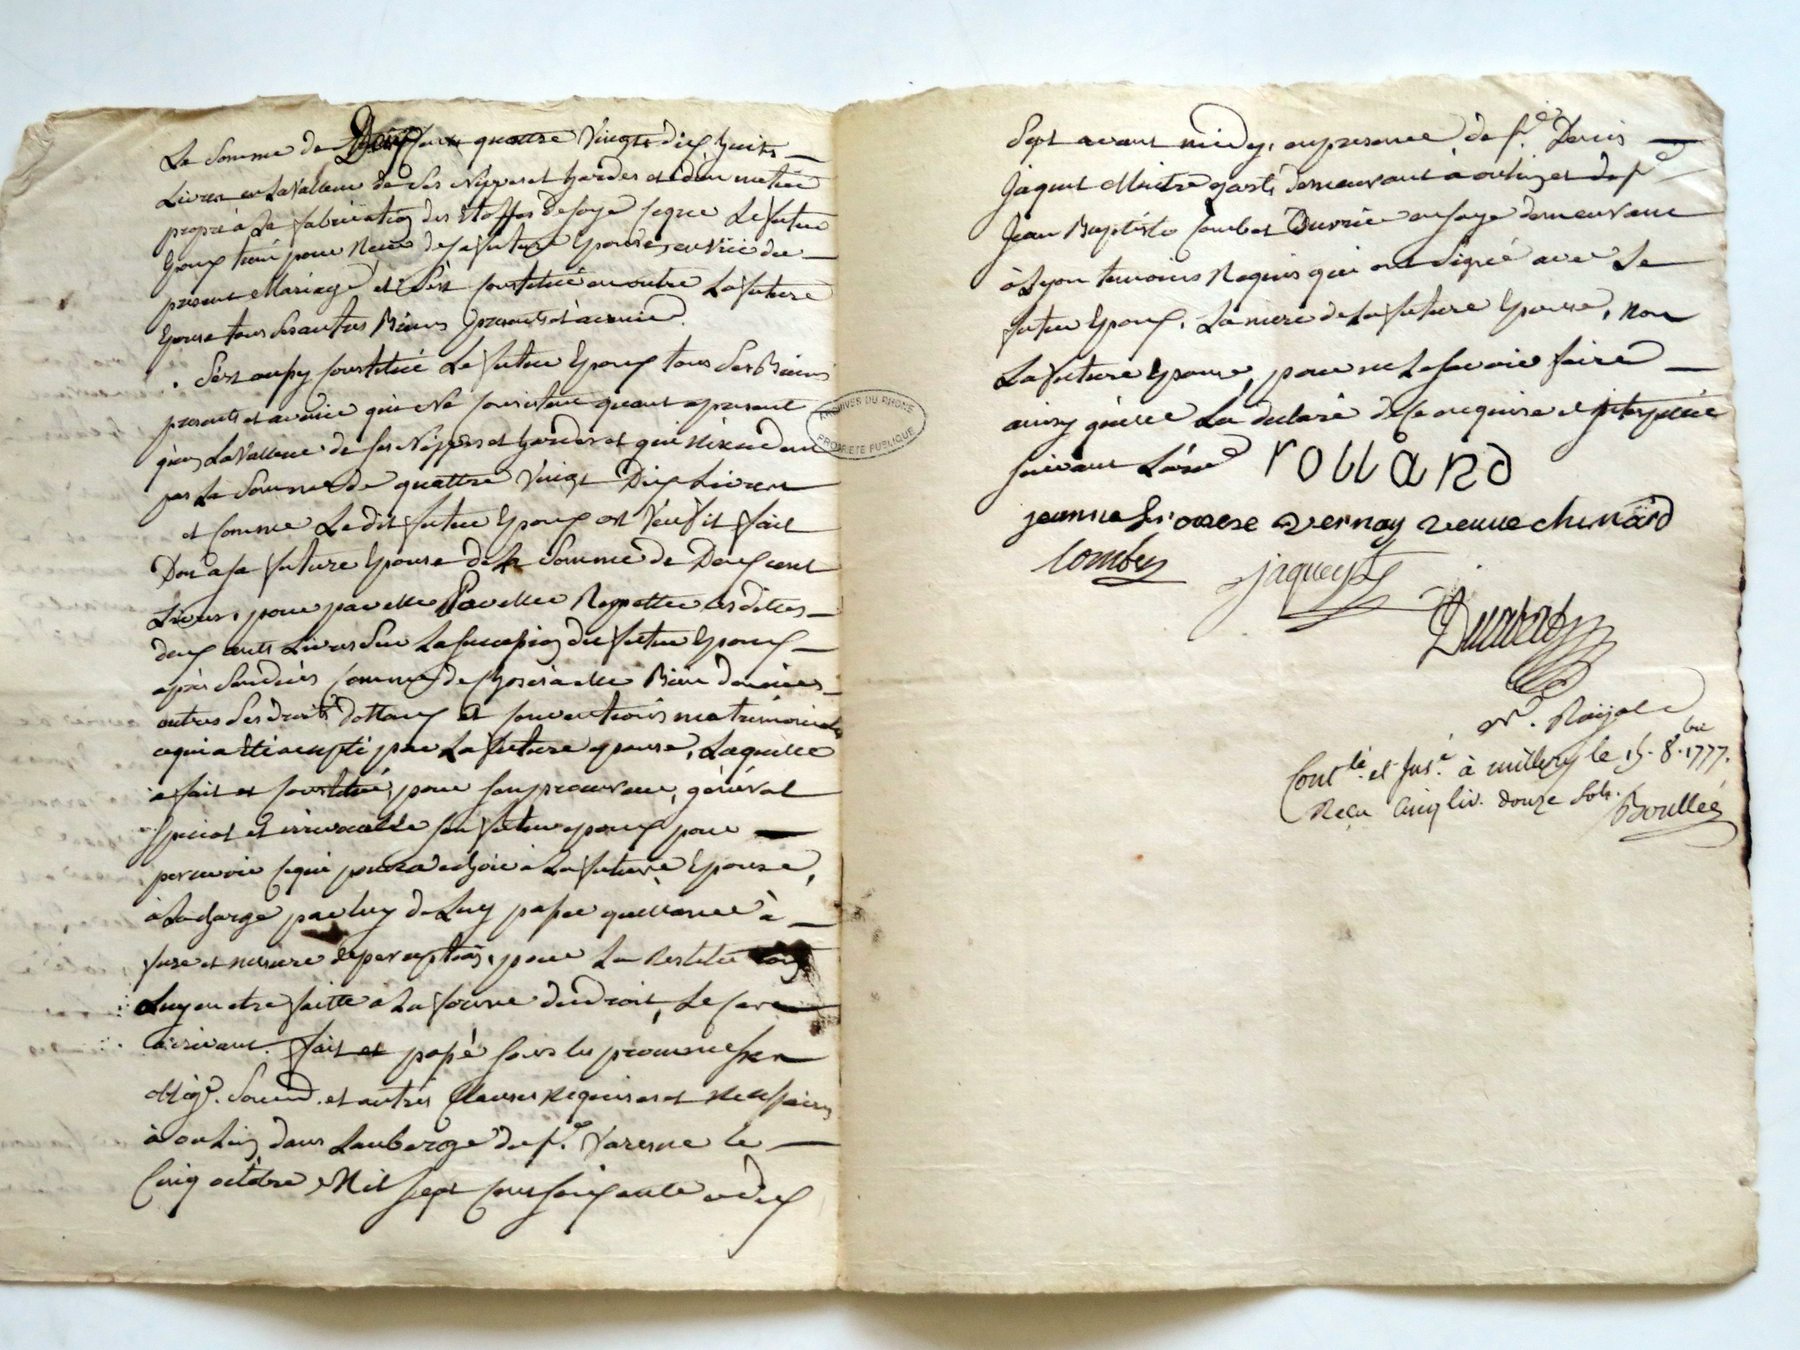 La Somme de Deux Cent quattre Vingts dix huits
Livres en La Valleur de Ses Nippes et hardes et d'un métié
propre à La fabrication des Etoffes de Soye ce que Le futur
Epoux tient pour Recu de Sa future Epouse, en Vüe du
present Mariage et S'est Constitué en outre La future
Epouse tous Ses autres Biens presents et a venir
S'est aussy Constitué Le futur Epoux tous Ses Biens
presents et avenir qui ne Consistent quant apresent
qu'en La Valleur de Ses Nippes et hardes et qui n'excedent
pas La Somme de quattre Vingt Dix Livres
et Comme Le dit futur Epoux est Veuf il fait
Don a Sa future Epouse de La Somme de Deux cent
Livres, pour par elle Repetter Les dittes
deux cents Livres Sur La Succession du futur Epoux
après Son Deces Comme de Chose a elle Bien donnée
outre Ses droits dottaux et Conventions matrimoniales
ce qui a Eté accepté par La future epouse, Laquelle
a fait et Constitué pour Son procureur, général
Special et irrevocable Son futur epoux pour
percevoir Ce qui poura echoir à La future Epouse,
à La charge par luy de Luy passer quittance à
fure et mesure de perception, pour La Restitution
Luy en etre faitte a La forme du droit, Le Cas
arrivant. fait et passé Sous Les promesses
oblig.s Soumis. et autres Clauses Requises et Necessaires
à oulins dans Lauberge du S.r Varenne le
Cinq octobre Mil Sept Cent Soixante et dix
Sept avant midy, en presence de S.r Denis
Jaquet Maitre garde demeurant à oulins et de S.r
Jean Baptiste Combet Ouvrier en Soye demeurant
à Lyon temoins Requis qui ont Signé avec Le
futur Epoux, La mere de La future Epouse, non
La future Epouse, pour ne Le Savoir faire
ainsy qu'elle La declaré de ce enquise et interpellée
Suivant L'ord.e rolland
jeanne vernay veuve chinard
Combet
jaquet
ARCHIVES DU RHONE
PROPRIETE PUBLIQUE
N.re Royal
Cont.lé et Ins.é à millery le 15. 8.bre 1777.
Reçu Cinq liv. douze Sols. Boullée